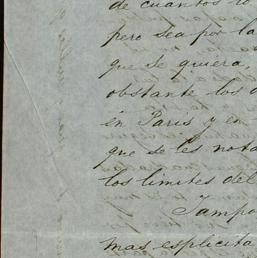 de cuantos
pero sea por la
que se quiera,
obstante los
en Paris y en
que se les nota
los limites del
Tampo
mas esplicita